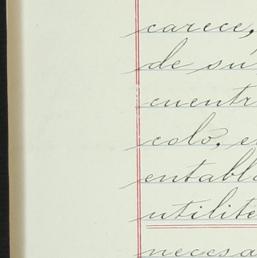 carece,
de su
cuentr
colo, e
entabl
utilite
necesa